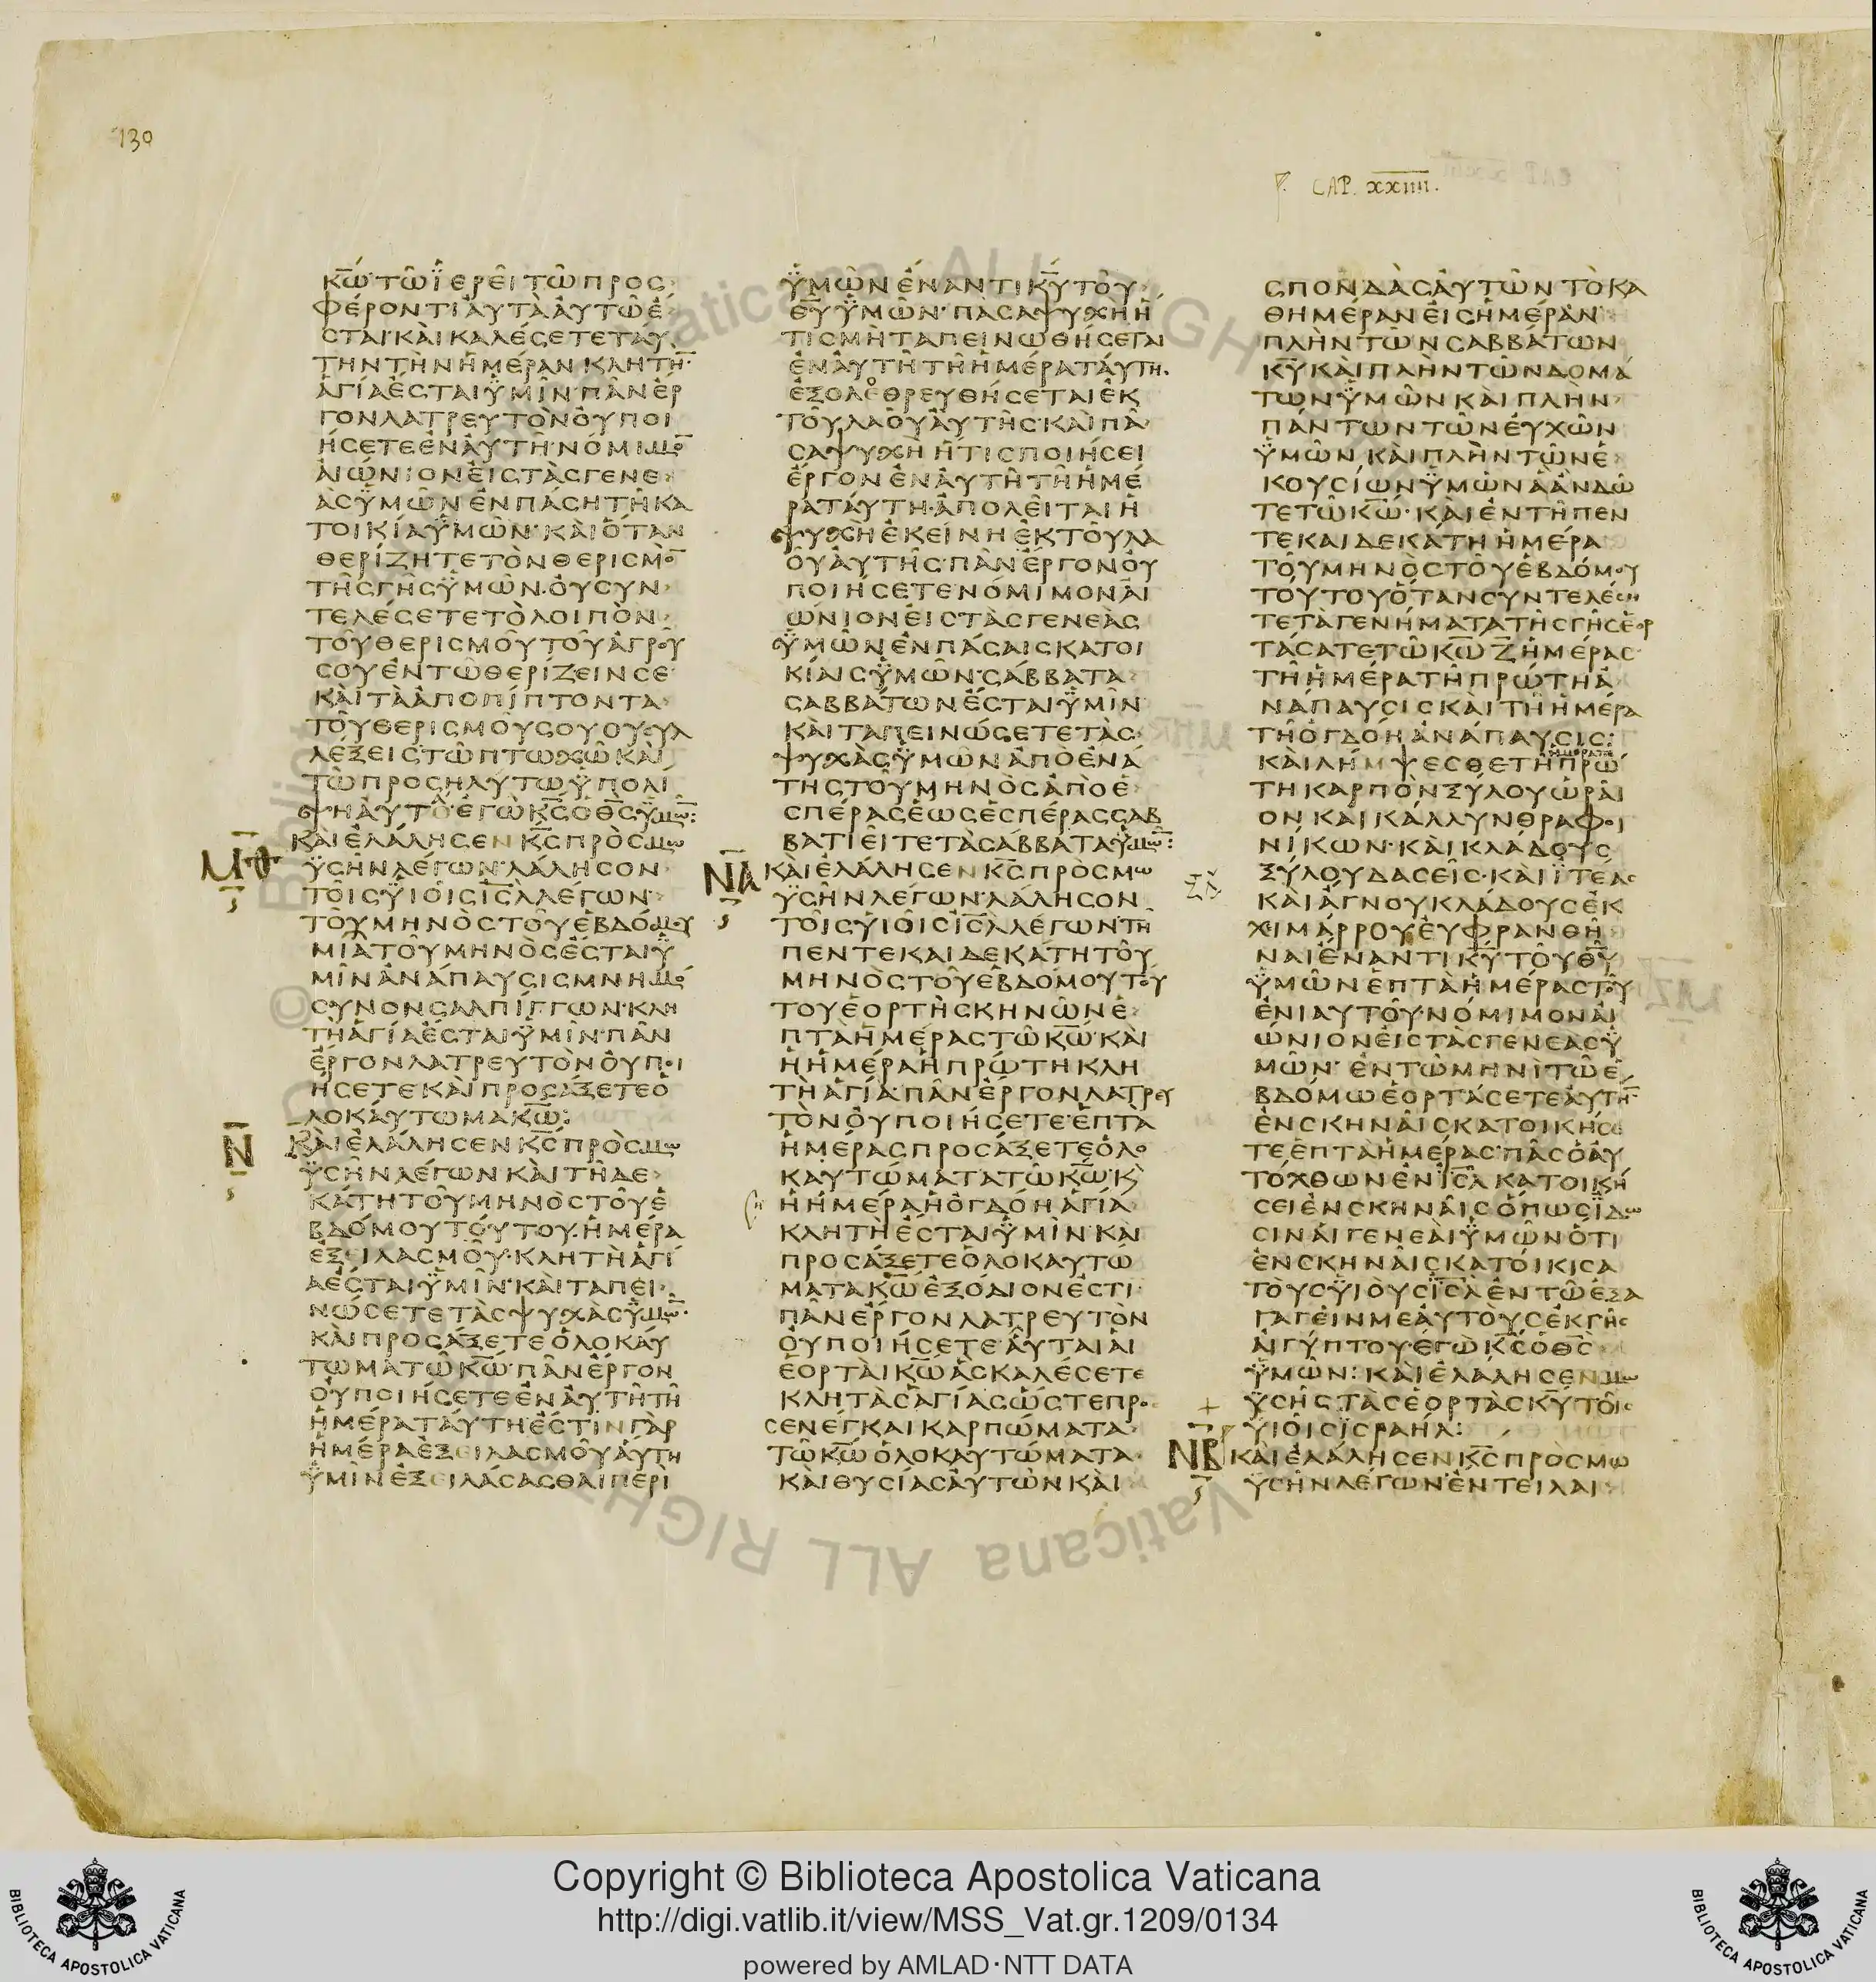 130
CAP. XXIIII.
κ̅ω̅· τῶ ἱερεῖ τῶ προσ
φέροντι ἀυτὰ ἀυτῶ ἔ
σται· κὰι καλέσετε τάυ
την τὴν ἡμέραν κλητη̅·
ἁγία ἔσται ὑμῖν· πᾶν ἔρ
γον λατρευτὸν ὀυ ποι
ήσετε ἐν ἀυτῆ· νόμιμο̅
ἀιώνιον ἐις τὰς γενε
ὰς ὑμῶν ἐν πάση τῆ κα
τοικία ὑμῶν· κὰι ὅταν
θερίζητε τὸν θερισμὸ̅
τῆς γῆς ὑμῶν· ὀυ συν
τελέσετε τὸ λοιπὸν
τοῦ θερισμοῦ τοῦ ἀγροῦ
σου ἐν τῶ θερίζειν σε
κὰι τὰ ἀποπίπτοντα
τοῦ θερισμοῦ σου ου συλ
λέξεις· τῶ πτωχῶ κὰι
τῶ προσηλύτω ὑπολί
ψη ἀυτό· ἐγὼ κ̅ς̅ ὁ θ̅ς̅ ὑμω̅:
Μ̅Θ̅
κὰι ἐλάλησεν κ̅ς̅ πρὸς μω
ϋσῆν λέγων· λάλησον
τοῖς ὑιοῖς ι̅σ̅λ̅ λέγων·
τοῦ μηνὸς τοῦ ἑβδόμου
μιᾶ τοῦ μηνὸς ἔσται ὑ
μῖν ἀνάπαυσις μνημό
συνον σαλπίγγων· κλη
τὴ ἁγία ἔσται ὑμῖν· πᾶν
ἔργον λατρευτὸν ὀυ ποι
ήσετε κὰι προσάξετε ὁ
λοκάυτωμα κ̅ω̅:
Ν̅
κὰι ἐλάλησεν κ̅ς̅ πρὸς μω
ϋσῆν λέγων· κὰι τῆ δε
κάτη τοῦ μηνὸς τοῦ ἑ
βδόμου τούτου· ἡμέρα
ἐξειλασμοῦ· κλητὴ ἁγί
α ἔσται ὑμῖν· κὰι ταπει
νώσετε τὰς ψυχὰς ὑμω̅·
κὰι προσάξετε ὁλοκάυ
τωμα τῶ κ̅ω̅· πᾶν ἔργον
ὀυ ποιήσετε ἐν ἀυτῆ τῆ
ἡμέρα τάυτη· ἔστιν γὰρ
ἡμέρα ἐξειλασμοῦ ἅυτη
ὑμῖν ἐξειλάσασθαι περὶ
ὑμῶν ἔναντι κ̅υ̅ τοῦ
θ̅υ̅ ὑμῶν· πᾶσα ψυχὴ ἥ
τις μὴ ταπεινωθήσεται
ἐν ἀυτῆ τῆ ἡμέρα τάυτη·
ἐξολεθρευθήσεται ἐκ
τοῦ λαοῦ ἀυτῆς· κὰι πᾶ
σα ψυχὴ ἥτις ποιήσει
ἔργον ἐν ἀυτῆ τῆ ἡμέ
ρα τάυτη· ἀπολεῖται ἡ
ψυχη ἐκείνη ἐκ τοῦ λα
οῦ ἀυτῆς· πᾶν ἔργον ὀυ
ποιήσετε· νόμιμον ἀι
ώνιον ἐις τὰς γενεὰς
ὑμῶν ἐν πάσαις κατοι
κίαις ὑμῶν· σάββατα
σαββάτων ἔσται ὑμῖν
κὰι ταπεινώσετε τὰς
ψυχὰς ὑμῶν ἀπὸ ἐνά
της τοῦ μηνὸς ἀπὸ ἑ
σπέρας ἕως ἑσπέρας σαβ
βατιεῖτε τὰ σάββατα ὑμῶ̅:
Ν̅Α̅
κὰι ἐλάλησεν κ̅ς̅ πρὸς μω
ϋσῆν λέγων· λάλησον
τοῖς ὑιοῖς ι̅σ̅λ̅ λέγων· τῆ
πεντεκαιδεκάτη τοῦ
μηνὸς τοῦ ἑβδόμου τού
του ἑορτὴ σκηνῶν ἑ
πτὰ ἡμέρας τῶ κ̅ω̅· κὰι
ἡ ἡμέρα ἡ πρώτη κλη
τὴ ἁγία· πᾶν ἔργον λατρευ
τὸν ὀυ ποιήσετε· ἑπτὰ
ἡμέρας προσάξετε ὁλο
καυτώματα τῶ κ̅ω̅· κ
ἡ ἡμέρα ἡ ὀγδόη ἁγία
κλητὴ ἔσται ὑμῖν· κὰι
προσάξετε ὁλοκαυτώ
ματα κ̅ω̅ ἐξόδιον ἐστι·
πᾶν ἔργον λατρευτὸν
ὀυ ποιήσετε· ἅυται ἁι
ἑορτὰι κ̅ω̅ ἃς καλέσετε
κλητὰς ἁγίας ὥστε προ
σενέγκαι καρπώματα
τῶ κ̅ω̅ ὁλοκαυτώματα
κὰι θυσίας ἀυτῶν κὰι
σπονδὰς ἀυτῶν τὸ κα
θημέραν ἐις ἡμέραν
πλὴν τῶν σαββάτων
κ̅υ̅ κὰι πλὴν τῶν δομά
των ὑμῶν κὰι πλὴν
πάντων τῶν ἐυχῶν
ὑμῶν κὰι πλὴν τῶν ἑ
κουσίων ὑμῶν ἃ ἂν δῶ
τε τῶ κ̅ω̅· κὰι ἐν τῆ πεν
τεκαιδεκάτη ἡμέρα
τοῦ μηνὸς τοῦ ἑβδόμου
τούτου ὅταν συντελέση
τε τὰ γενήματα τῆς γῆς ἑορ
τάσατε τῶ κ̅ω̅ ζ̅ ἡμέρας
τῆ ἡμέρα τῆ πρώτη ἀ
νάπαυσις κὰι τῆ ἡμέρα
τῆ ὀγδόη ἀνάπαυσις:
ἡμέρα τῆ
κὰι λήμψεσθε τῆ πρώ
τη καρπὸν ξύλου ὡρᾶι
ον κὰι κάλλυνθρα φοι
νίκων· κὰι κλάδους
ξύλου δασεῖς· κὰι ϊτέας
κὰι ἄγνου κλάδους ἐκ
χιμάρρου ἐυφρανθῆ
ναι ἔναντι κ̅υ̅ τοῦ θ̅υ̅
ὑμῶν ἑπτὰ ἡμέρας τοῦ
ἐνιαυτοῦ· νόμιμον ἀι
ώνιον ἐις τὰς γενεας ὑ
μῶν· ἐν τῶ μηνὶ τῶ ἑ
βδόμω ἑορτάσετε ἀυτη̅
ἐν σκηνᾶις κατοικήσε
τε ἑπτὰ ἡμέρας· πᾶς ὁ ἀυ
τόχθων ἐν ι̅σ̅λ̅ κατοικη
σει ἐν σκηνᾶις ὅπως ϊδω
σιν ἁι γενεὰι ὑμῶν ὅτι
ἐν σκηνᾶις κατόικισα
τὸυς ὑιὸυς ι̅σ̅λ̅ ἐν τῶ ἐξα
γαγεῖν με ἀυτὸυς ἐκ γῆς
ἀιγύπτου· ἐγὼ κ̅ς̅ ὁ θ̅ς̅
ὑμῶν: κὰι ἐλάλησεν μω
ϋσῆς τὰς ἑορτὰς κ̅υ̅ τοῖς
ὑιοῖς ϊσραήλ:
Ν̅Β̅
κὰι ἐλάλησεν κ̅ς̅ πρὸς μω
ϋσῆν λέγων· ἔντειλαι
Copyright © Biblioteca Apostolica Vaticana
http://digi.vatlib.it/view/MSS_Vat.gr.1209/0134
powered by AMLAD·NTT DATA
BIBLIOTECA APOSTOLICA VATICANA
BIBLIOTECA APOSTOLICA VATICANA